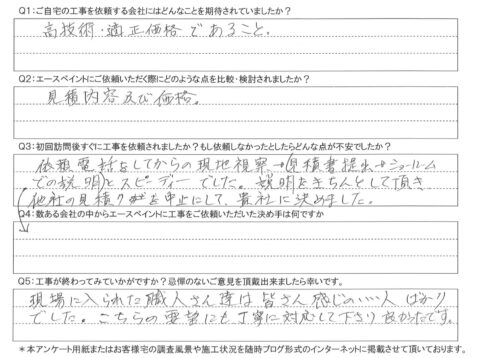 Q1:ご自宅の工事を依頼する会社にはどんなことを期待されていましたか?
高技術・適正価格であること。
Q2:エースペイントにご依頼いただく際にどのような点を比較・検討されましたか?
見積内容及び価格。
Q3:初回訪問後すぐに工事を依頼されましたか?もし依頼しなかったとしたらどんな点が不安でしたか?
依頼電話をしてからの現地視察→(見積書提出→ショールーム
での説明)とスピーディーでした。説明をきちんとして頂き
他社の見積りを中止にして、貴社に決めました。
Q4:数ある会社の中からエースペイントに工事をご依頼いただいた決め手は何ですか
Q5:工事が終わってみていかがですか?忌憚のないご意見を頂戴出来ましたら幸いです。
現場に入られた職人さん達は皆さん感じのいい人ばかり
でした。こちらの要望にも丁寧に対応して下さり良かったです。
*本アンケート用紙またはお客様宅の調査風景や施工状況を随時ブログ形式のインターネットに掲載させて頂いております。